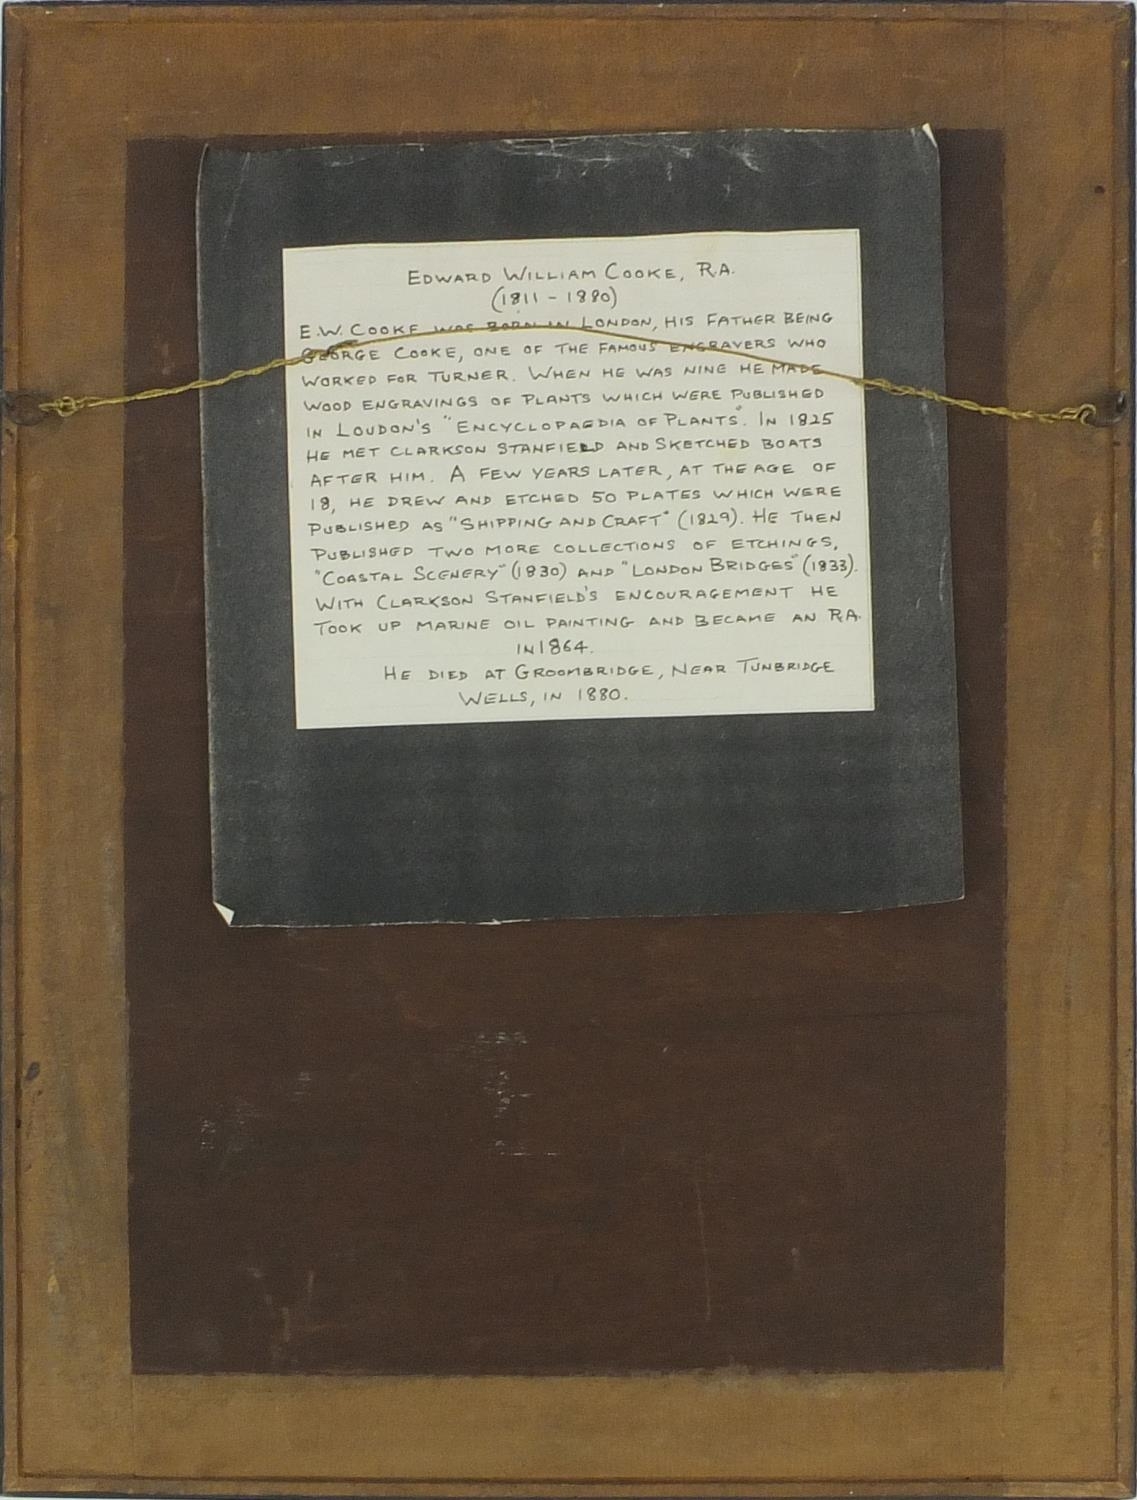 EDWARD WILLIAM COOKE, R.A.
(1811 - 1880)
E.W. COOKE WAS BORN IN LONDON, HIS FATHER BEING
GEORGE COOKE, ONE OF THE FAMOUS ENGRAVERS WHO
WORKED FOR TURNER. WHEN HE WAS NINE HE MADE
WOOD ENGRAVINGS OF PLANTS WHICH WERE PUBLISHED
IN LOUDON'S "ENCYCLOPAEDIA OF PLANTS". IN 1825
HE MET CLARKSON STANFIELD AND SKETCHED BOATS
AFTER HIM. A FEW YEARS LATER, AT THE AGE OF
18, HE DREW AND ETCHED 50 PLATES WHICH WERE
PUBLISHED AS "SHIPPING AND CRAFT" (1829). HE THEN
PUBLISHED TWO MORE COLLECTIONS OF ETCHINGS,
"COASTAL SCENERY" (1830) AND "LONDON BRIDGES" (1833).
WITH CLARKSON STANFIELD'S ENCOURAGEMENT HE
TOOK UP MARINE OIL PAINTING AND BECAME AN R.A.
IN 1864.
HE DIED AT GROOMBRIDGE, NEAR TUNBRIDGE
WELLS, IN 1880.